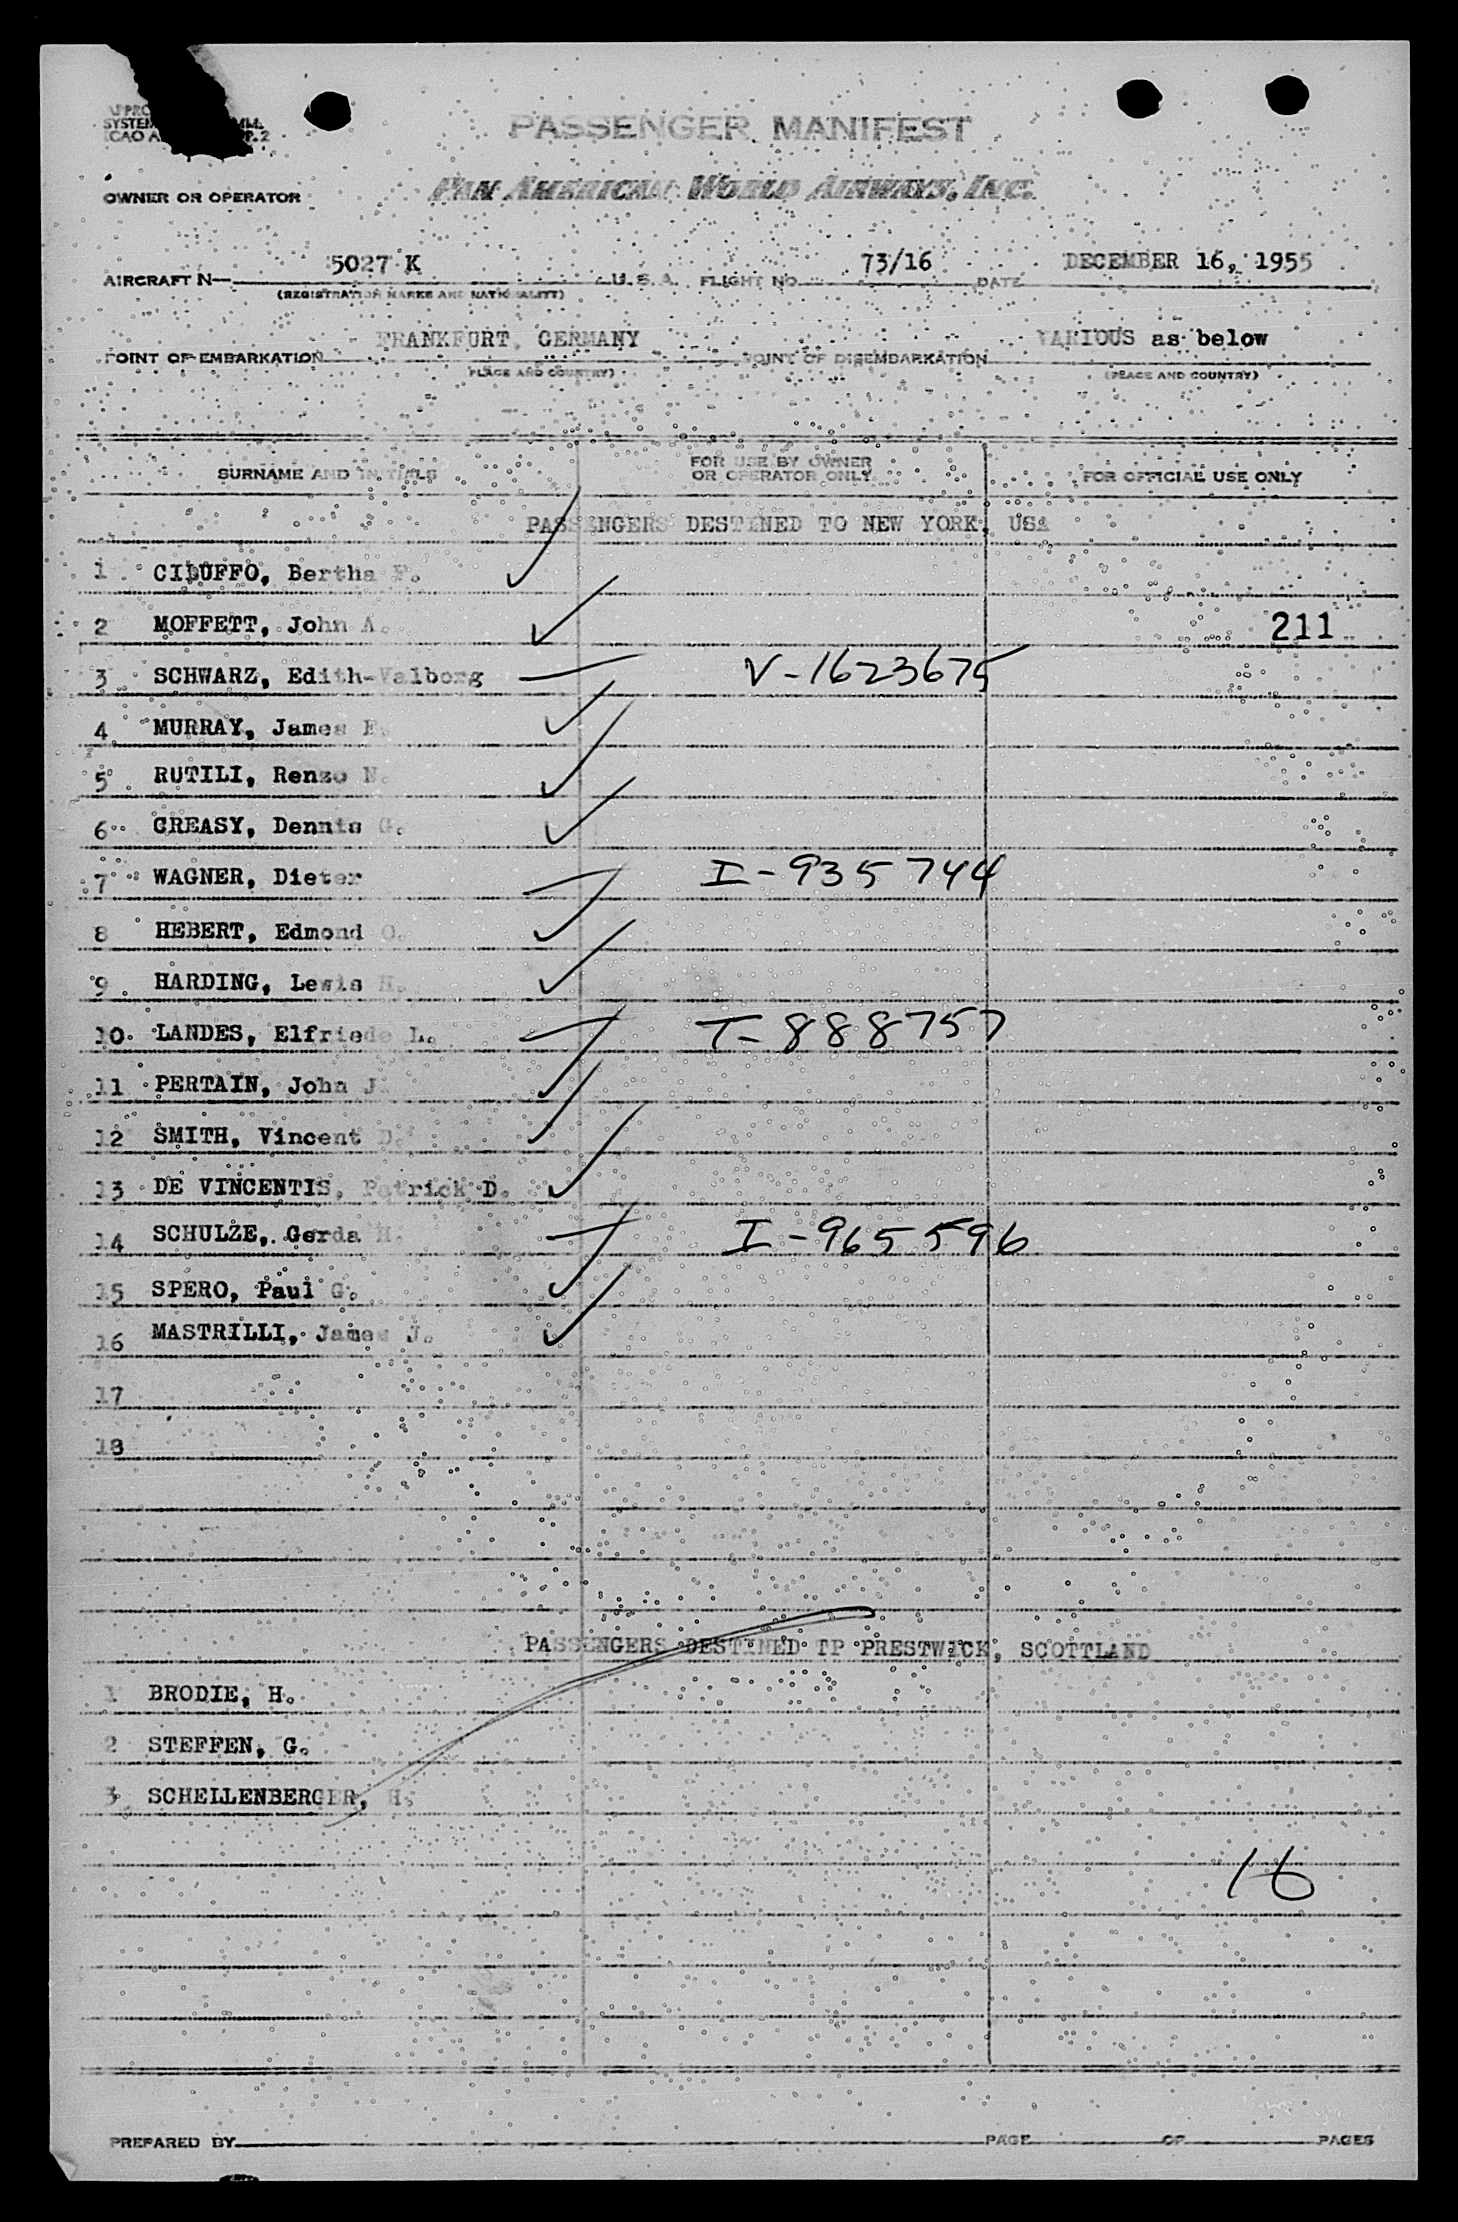 PASSENGER MANIFEST
OWNER OR OPERATOR PAN AMERICAN WORLD AIRWAYS, INC.
AIRCRAFT N— 5027 K U.S.A. FLIGHT NO. 73/16 DATE DECEMBER 16, 1955
(REGISTRATION MARKS AND NATIONALITY)
POINT OF EMBARKATION FRANKFURT, GERMANY POINT OF DISEMBARKATION VARIOUS as below
(PLACE AND COUNTRY) (PLACE AND COUNTRY)
SURNAME AND INITIALS FOR USE BY OWNER OR OPERATOR ONLY FOR OFFICIAL USE ONLY
PASSENGERS DESTINED TO NEW YORK, USA
1 CILUFFO, Bertha F.
2 MOFFETT, John A. 211
3 SCHWARZ, Edith-Valborg V-1623675
4 MURRAY, James
5 RUTILI, Renzo N.
6 GREASY, Dennis G.
7 WAGNER, Dieter I-935744
8 HEBERT, Edmond O.
9 HARDING, Lewis H.
10 LANDES, Elfriede L. T-888757
11 PERTAIN, John J.
12 SMITH, Vincent D.
13 DE VINCENTIS, Patrick D.
14 SCHULZE, Gerda H. I-965596
15 SPERO, Paul G.
16 MASTRILLI, James J.
17
18
PASSENGERS DESTINED TP PRESTWICK, SCOTTLAND
1 BRODIE, H.
2 STEFFEN, G.
3 SCHELLENBERGER, H.
16
PREPARED BY PAGE OF PAGES